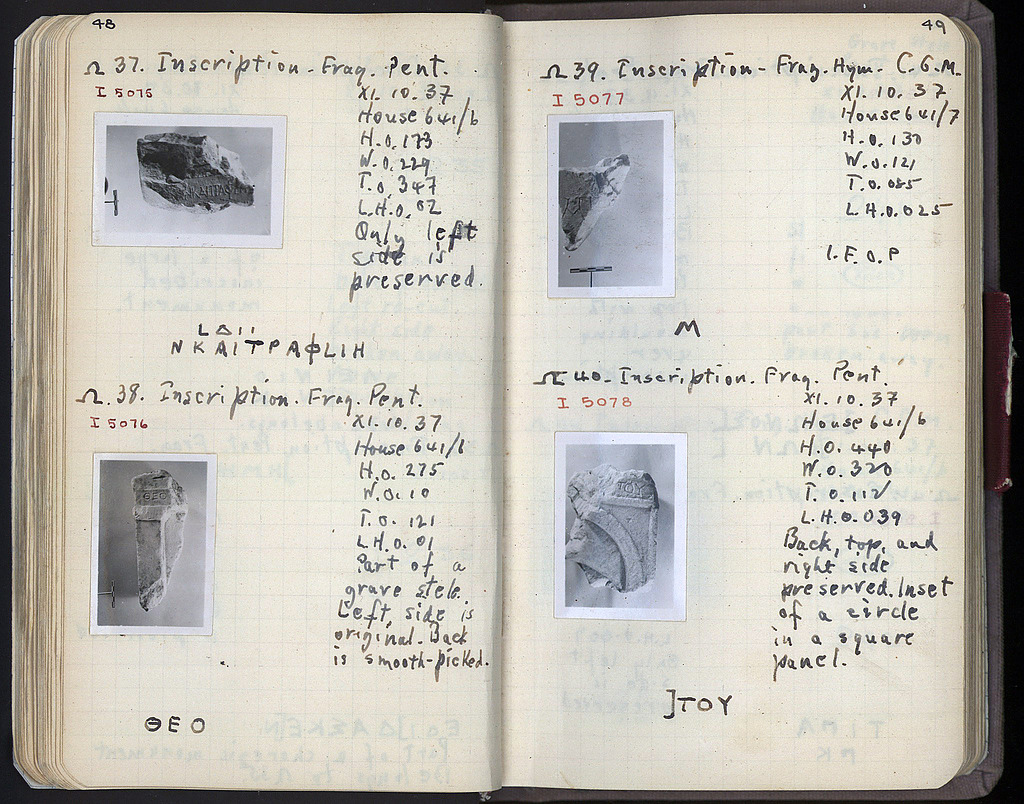 48
Ω 37. Inscription - Frag. Pent.
I 5075
XI. 10. 37
House 641/6
H.0.173
W.0.229
T.0.347
L.H.0.02
Only left
side is
preserved.
NKAITPAΦLIH
Ω. 38. Inscription. Frag. Pent.
I 5076
XI. 10. 37
House 641/6
H.0.275
W.0.10
T.0.121
L.H.0.01
Part of a
grave stele.
Left side is
original. Back
is smooth-picked.
ΘEO
ΘEO
49
Ω 39. Inscription - Frag. Hym. C.G.M.
I 5077
XI. 10. 37
House 641/7
H.0.130
W.0.121
T.0.085
L.H.0.025
I.F.O.P
M
Ω 40. Inscription. Frag. Pent.
I 5078
XI. 10. 37
House 641/6
H.0.440
W.0.320
T.0.112
L.H.0.039
Back, top, and
right side
preserved. Inset
of a circle
in a square
panel.
TOY
]TOY